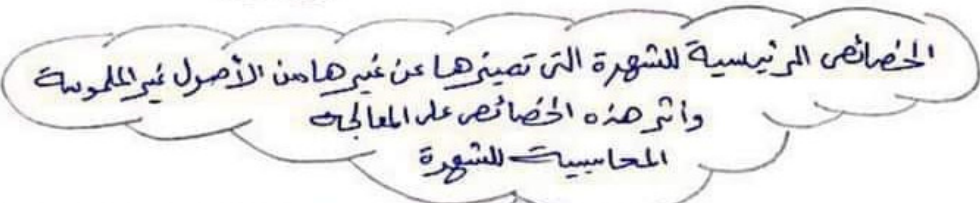 الخصائص الرئيسية للشهرة التى تميزها عن غيرها من الأصول غير الملموسة
وأثر هذه الخصائص على المعالجة
المحاسبية للشهرة